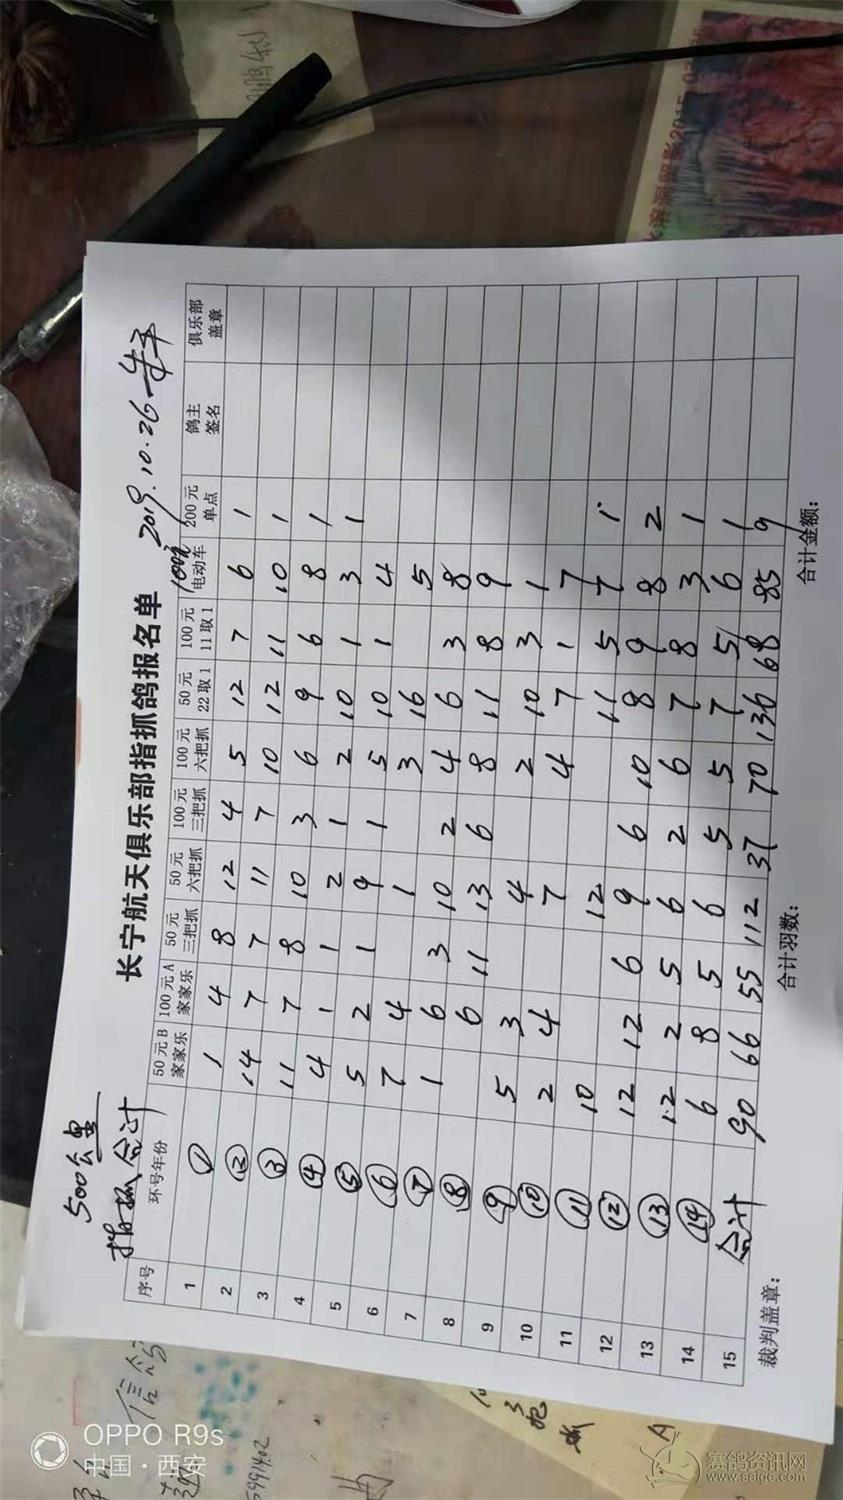 500公里
指抓合计
长宁航天俱乐部指抓鸽报名单 2019.10.26
序号 环号年份 50元B家家乐 100元A家家乐 50元三把抓 50元六把抓 100元三把抓 100元六把抓 50元22取1 100元11取1 100元电动车 200元单点 鸽主签名 俱乐部盖章
1 ① 1 4 8 12 4 5 12 7 6 1
2 ② 14 7 7 11 7 10 12 11 10 1
3 ③ 11 7 8 10 3 6 9 6 8 1
4 ④ 4 1 1 2 1 2 10 1 3 1
5 ⑤ 5 2 1 9 1 5 10 1 4
6 ⑥ 7 4 1 3 16 5
7 ⑦ 1 6 3 10 2 4 6 3 8
8 ⑧ 6 11 13 6 8 11 8 9
9 ⑨ 5 3 4 2 10 3 1
10 ⑩ 2 4 7 4 7 1 7
11 ⑪ 10 12 11 5 7 1
12 ⑫ 12 12 6 9 6 10 8 9 8 2
13 ⑬ 12 2 5 6 2 6 7 8 3 1
14 ⑭ 6 8 5 6 5 5 7 5 6 1
15 合计 90 66 55 112 37 70 136 68 85 9
裁判盖章: 合计羽数: 合计金额:
OPPO R9s
中国·西安
赛鸽资讯网
www.saige.com